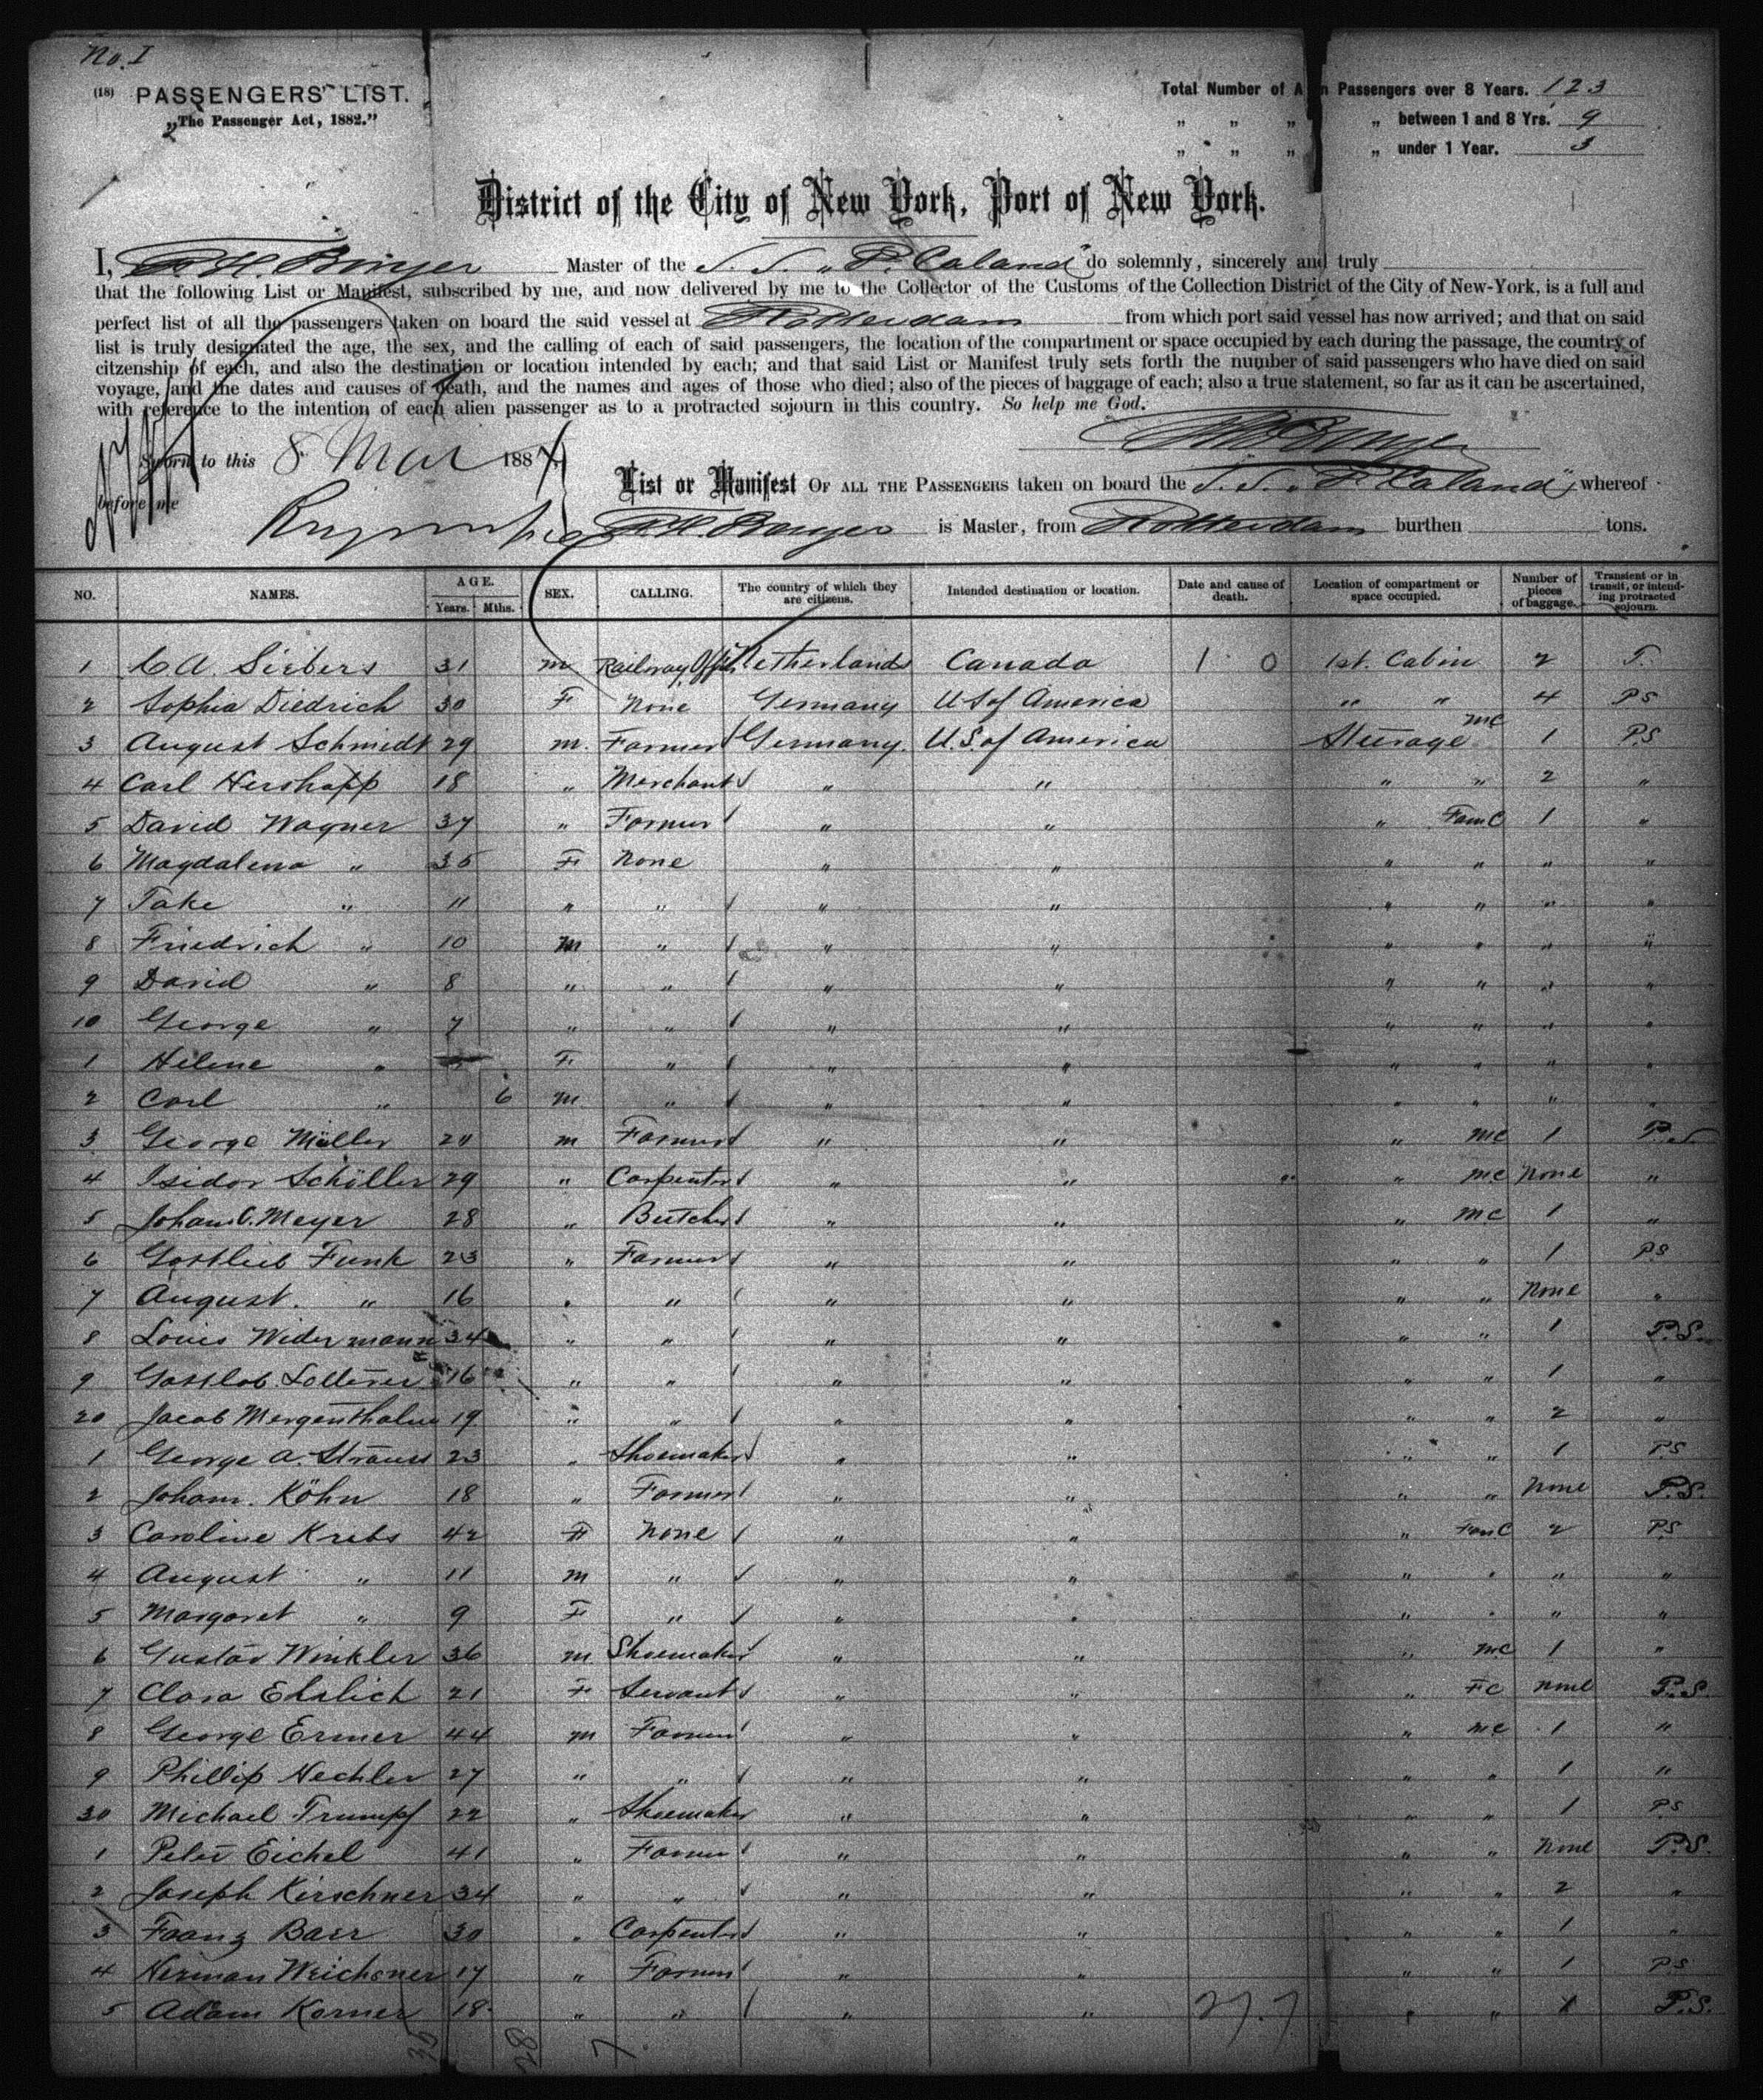 No. I
(18) PASSENGERS' LIST.
„The Passenger Act, 1882.”
Total Number of A n Passengers over 8 Years. 123
„ „ „ „ between 1 and 8 Yrs. 9
„ „ „ „ under 1 Year. 3
District of the City of New York, Port of New York.
I, Master of the S. S. „P. Caland” do solemnly, sincerely and truly
that the following List or Manifest, subscribed by me, and now delivered by me to the Collector of the Customs of the Collection District of the City of New-York, is a full and
perfect list of all the passengers taken on board the said vessel at Rotterdam from which port said vessel has now arrived; and that on said
list is truly designated the age, the sex, and the calling of each of said passengers, the location of the compartment or space occupied by each during the passage, the country of
citzenship of each, and also the destination or location intended by each; and that said List or Manifest truly sets forth the number of said passengers who have died on said
voyage, and the dates and causes of death, and the names and ages of those who died; also of the pieces of baggage of each; also a true statement, so far as it can be ascertained,
with reference to the intention of each alien passenger as to a protracted sojourn in this country. So help me God.
Sworn to this 8 Mar 188
before me
List or Manifest OF ALL THE PASSENGERS taken on board the S. S. „P. Caland”, whereof
is Master, from Rotterdam burthen tons.
NO. NAMES. AGE. Years. Mths. SEX. CALLING. The country of which they are citizens. Intended destination or location. Date and cause of death. Location of compartment or space occupied. Number of pieces of baggage. Transient or in transit, or intending protracted sojourn.
1 C A. Siebers 31 m Railway Netherlands Canada 1 0 1st. Cabin 2 T.
2 Sophia Diedrich 30 F None Germany U S of America „ „ 4 PS
3 August Schmidt 29 m. Farmer Germany. U. S of America Steerage MC 1 P.S
4 Carl 18 „ Merchant „ „ „ „ 2 „
5 David Wagner 37 „ Farmer „ „ „ Fam C 1 „
6 Magdalena „ 35 F None „ „ „ „ „ „
7 „ 11 „ „ „ „ „ „ „ „
8 Friedrich „ 10 m „ „ „ „ „ „ „
9 David „ 8 „ „ „ „ „ „ „ „
10 George „ 7 „ „ „ „ „ „ „ „
1 Helene „ F „ „ „ „ „ „ „
2 Carl „ 6 m „ „ „ „ „ „ „
3 George Müller 20 m Farmer „ „ „ MC 1 P.S
4 Isidor Schöller 29 „ Carpenter „ „ „ MC None „
5 Johan C. Meyer 28 „ Butcher „ „ „ MC 1 „
6 Gottlieb Funk 23 „ Farmer „ „ „ „ 1 PS
7 August. „ 16 „ „ „ „ „ „ None „
8 Louis Widermann 34 „ „ „ „ „ „ 1 P.S.
9 Gottlob 16 „ „ „ „ „ „ 1 „
20 Jacob Mergenthaler 19 „ „ „ „ „ „ 2 „
1 George A. Strauss 23 „ Shoemaker „ „ „ „ 1 PS
2 Johann. Köhn 18 „ Farmer „ „ „ „ None P.S.
3 Caroline Krebs 42 F None „ „ „ Fam C 2 PS
4 August „ 11 m „ „ „ „ „ „ „
5 Margaret „ 9 F „ „ „ „ „ „ „
6 Gustav Winkler 36 m Shoemaker „ „ „ MC 1 „
7 Clara Ehrlich 21 F Servant „ „ „ FC None P.S.
8 George Ermer 44 m Farmer „ „ „ MC 1 „
9 Phillip Hechler 27 „ „ „ „ „ „ 1 „
30 Michael Trumpf 22 „ Shoemaker „ „ „ „ 1 PS
1 Peter Eichel 41 „ Farmer „ „ „ „ None P.S.
2 Joseph Kirschner 34 „ „ „ „ „ „ 2 „
3 Franz Baer 30 „ Carpenter „ „ „ „ 1 „
4 Herman Weichsner 17 „ Farmer „ „ „ „ 1 PS
5 Adam Korner 18 „ „ „ „ „ „ 1 P.S.